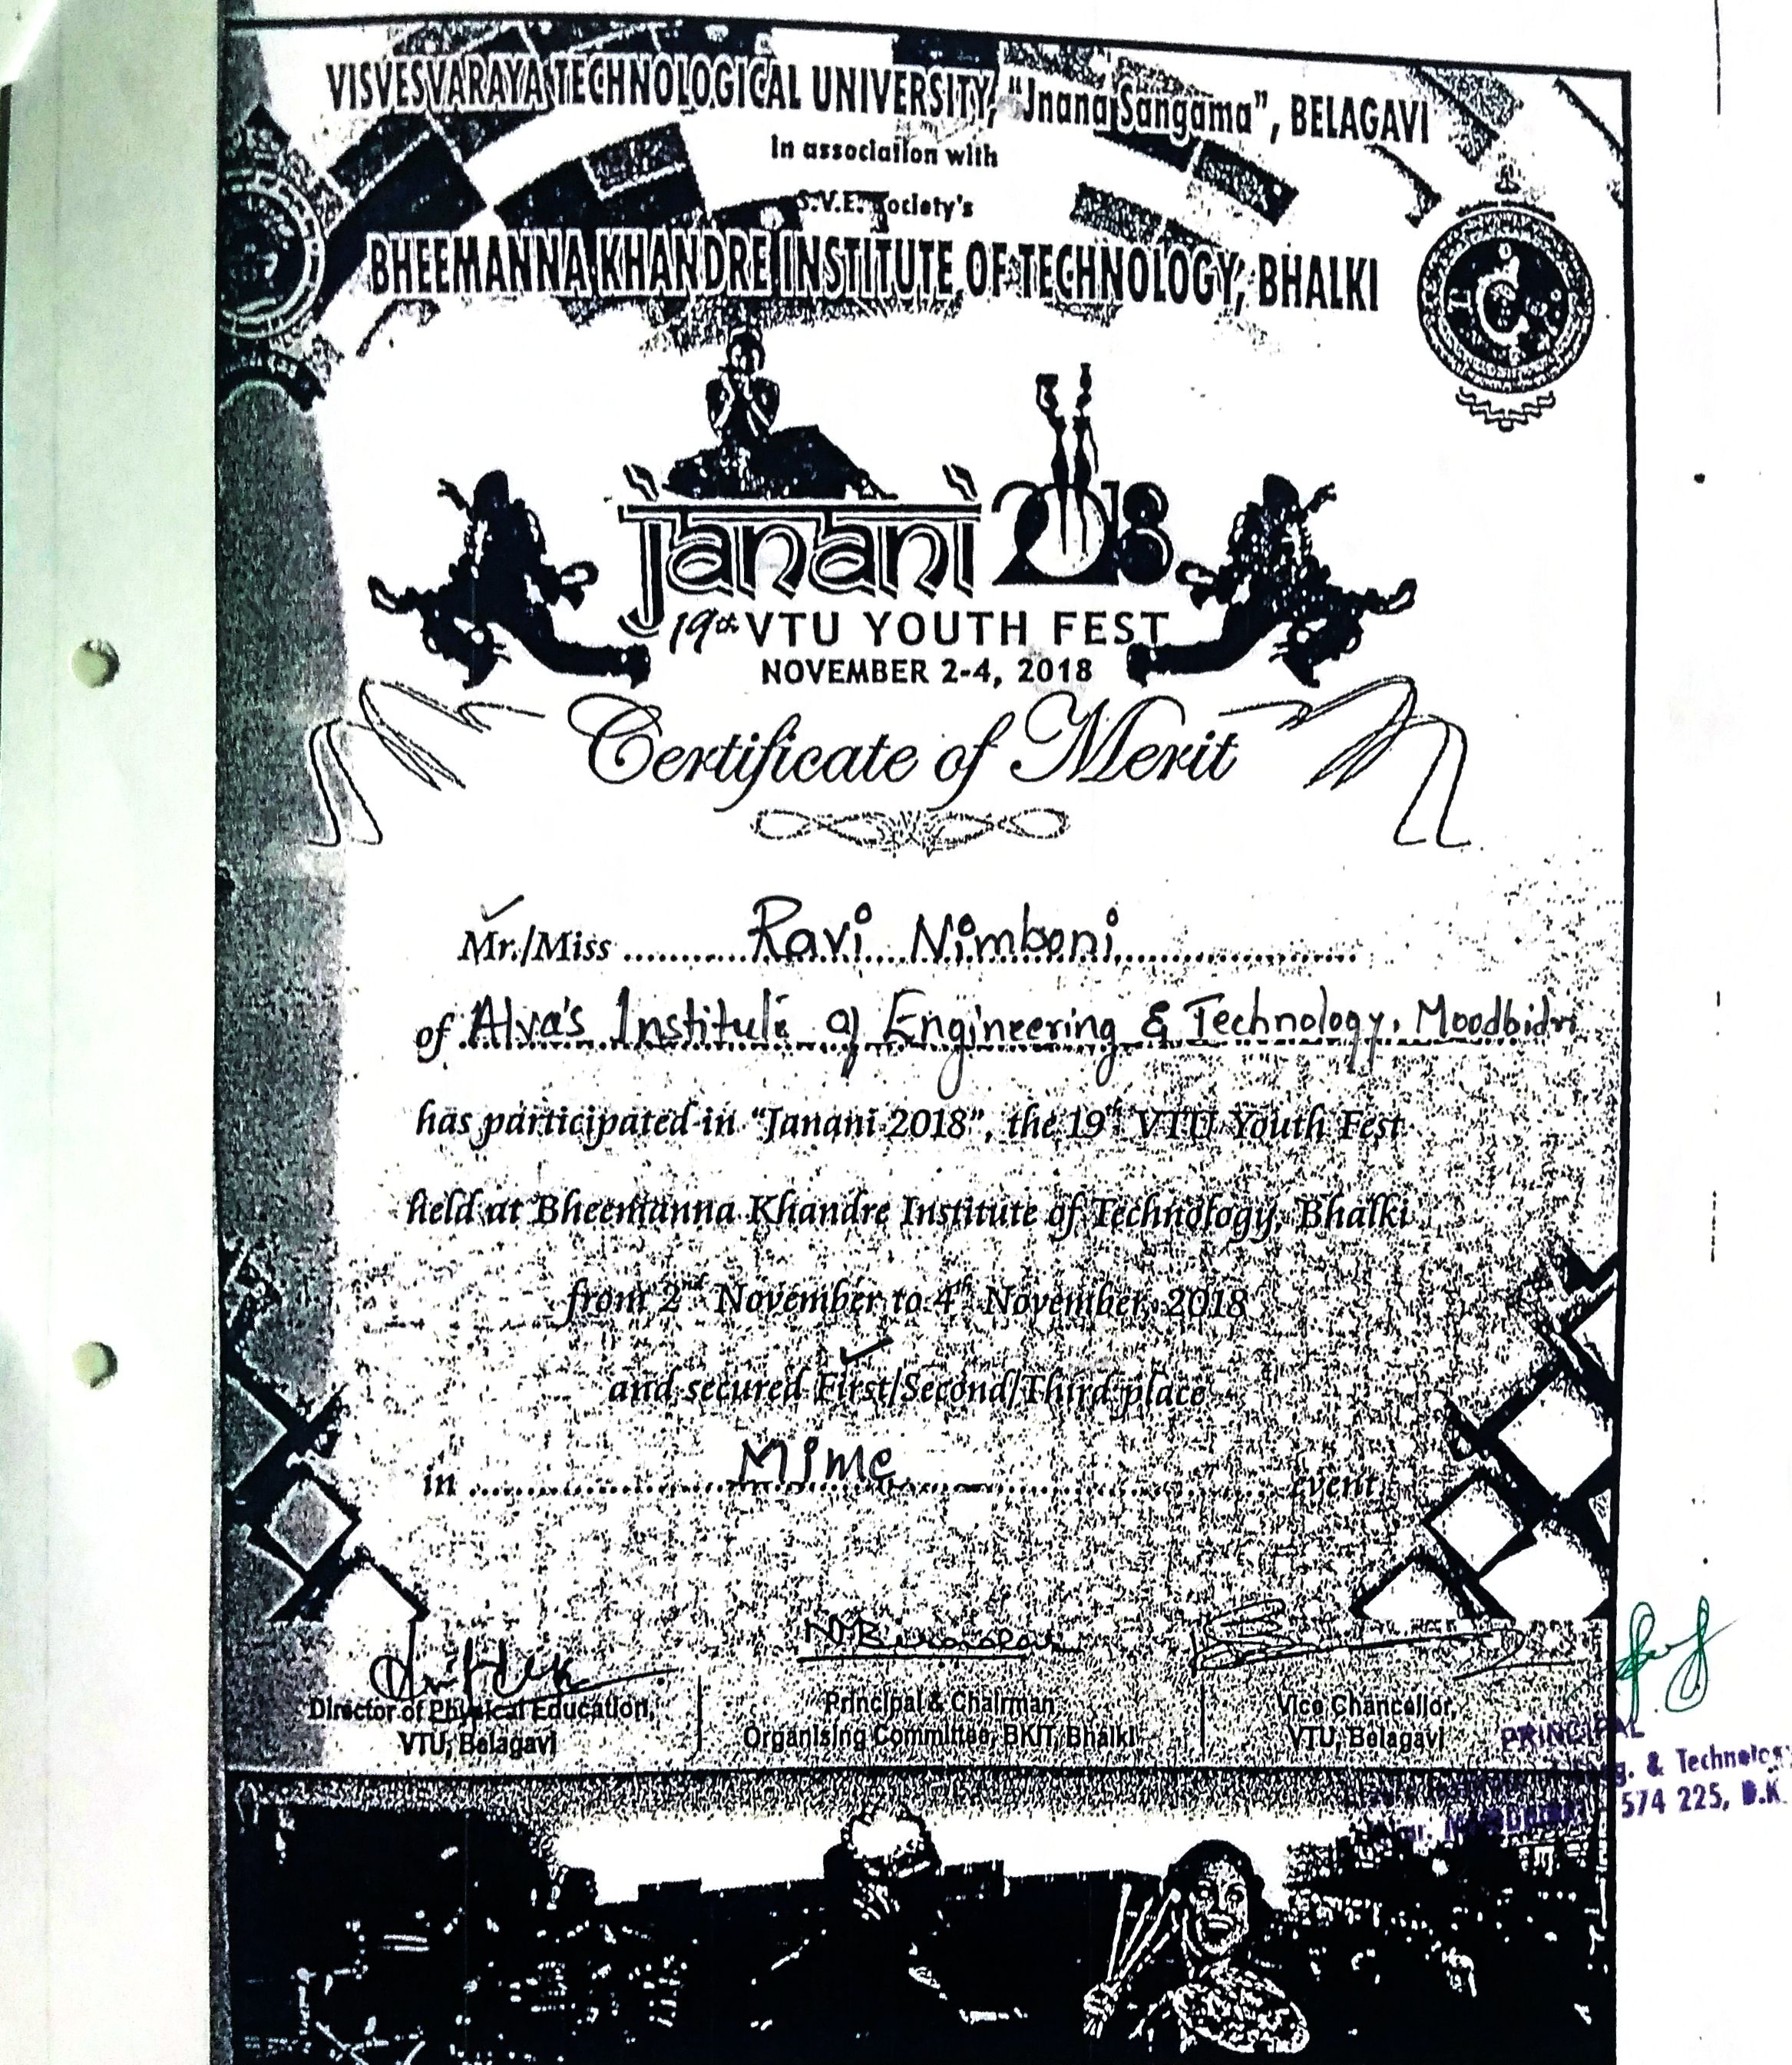 VISVESVARAYA TECHNOLOGICAL UNIVERSITY, "Jnana Sangama", BELAGAVI
In association with
S.V.E. Society's
BHEEMANNA KHANDRE INSTITUTE OF TECHNOLOGY, BHALKI
janani 2018
19th VTU YOUTH FEST
NOVEMBER 2-4, 2018
Certificate of Merit
Mr./Miss Ravi Nimboni
of Alva's Institute of Engineering & Technology, Moodbidri
has participated in "Janani 2018", the 19th VTU Youth Fest
held at Bheemanna Khandre Institute of Technology, Bhalki
from 2nd November to 4th November, 2018
and secured First/Second/Third place
in Mime event
Director of Physical Education,
VTU, Belagavi
Principal & Chairman
Organising Committee, BKIT, Bhalki
Vice Chancellor,
VTU, Belagavi
PRINCIPAL
& Technology
574 225, D.K.